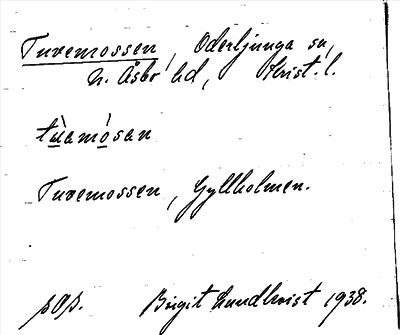 Tuvemossen, Oderljunga sn,
N. Åsbo hd, Krist. l.
tùamósan
Tuvemossen, Gyllholmen.
Birgit Lundkvist 1938.